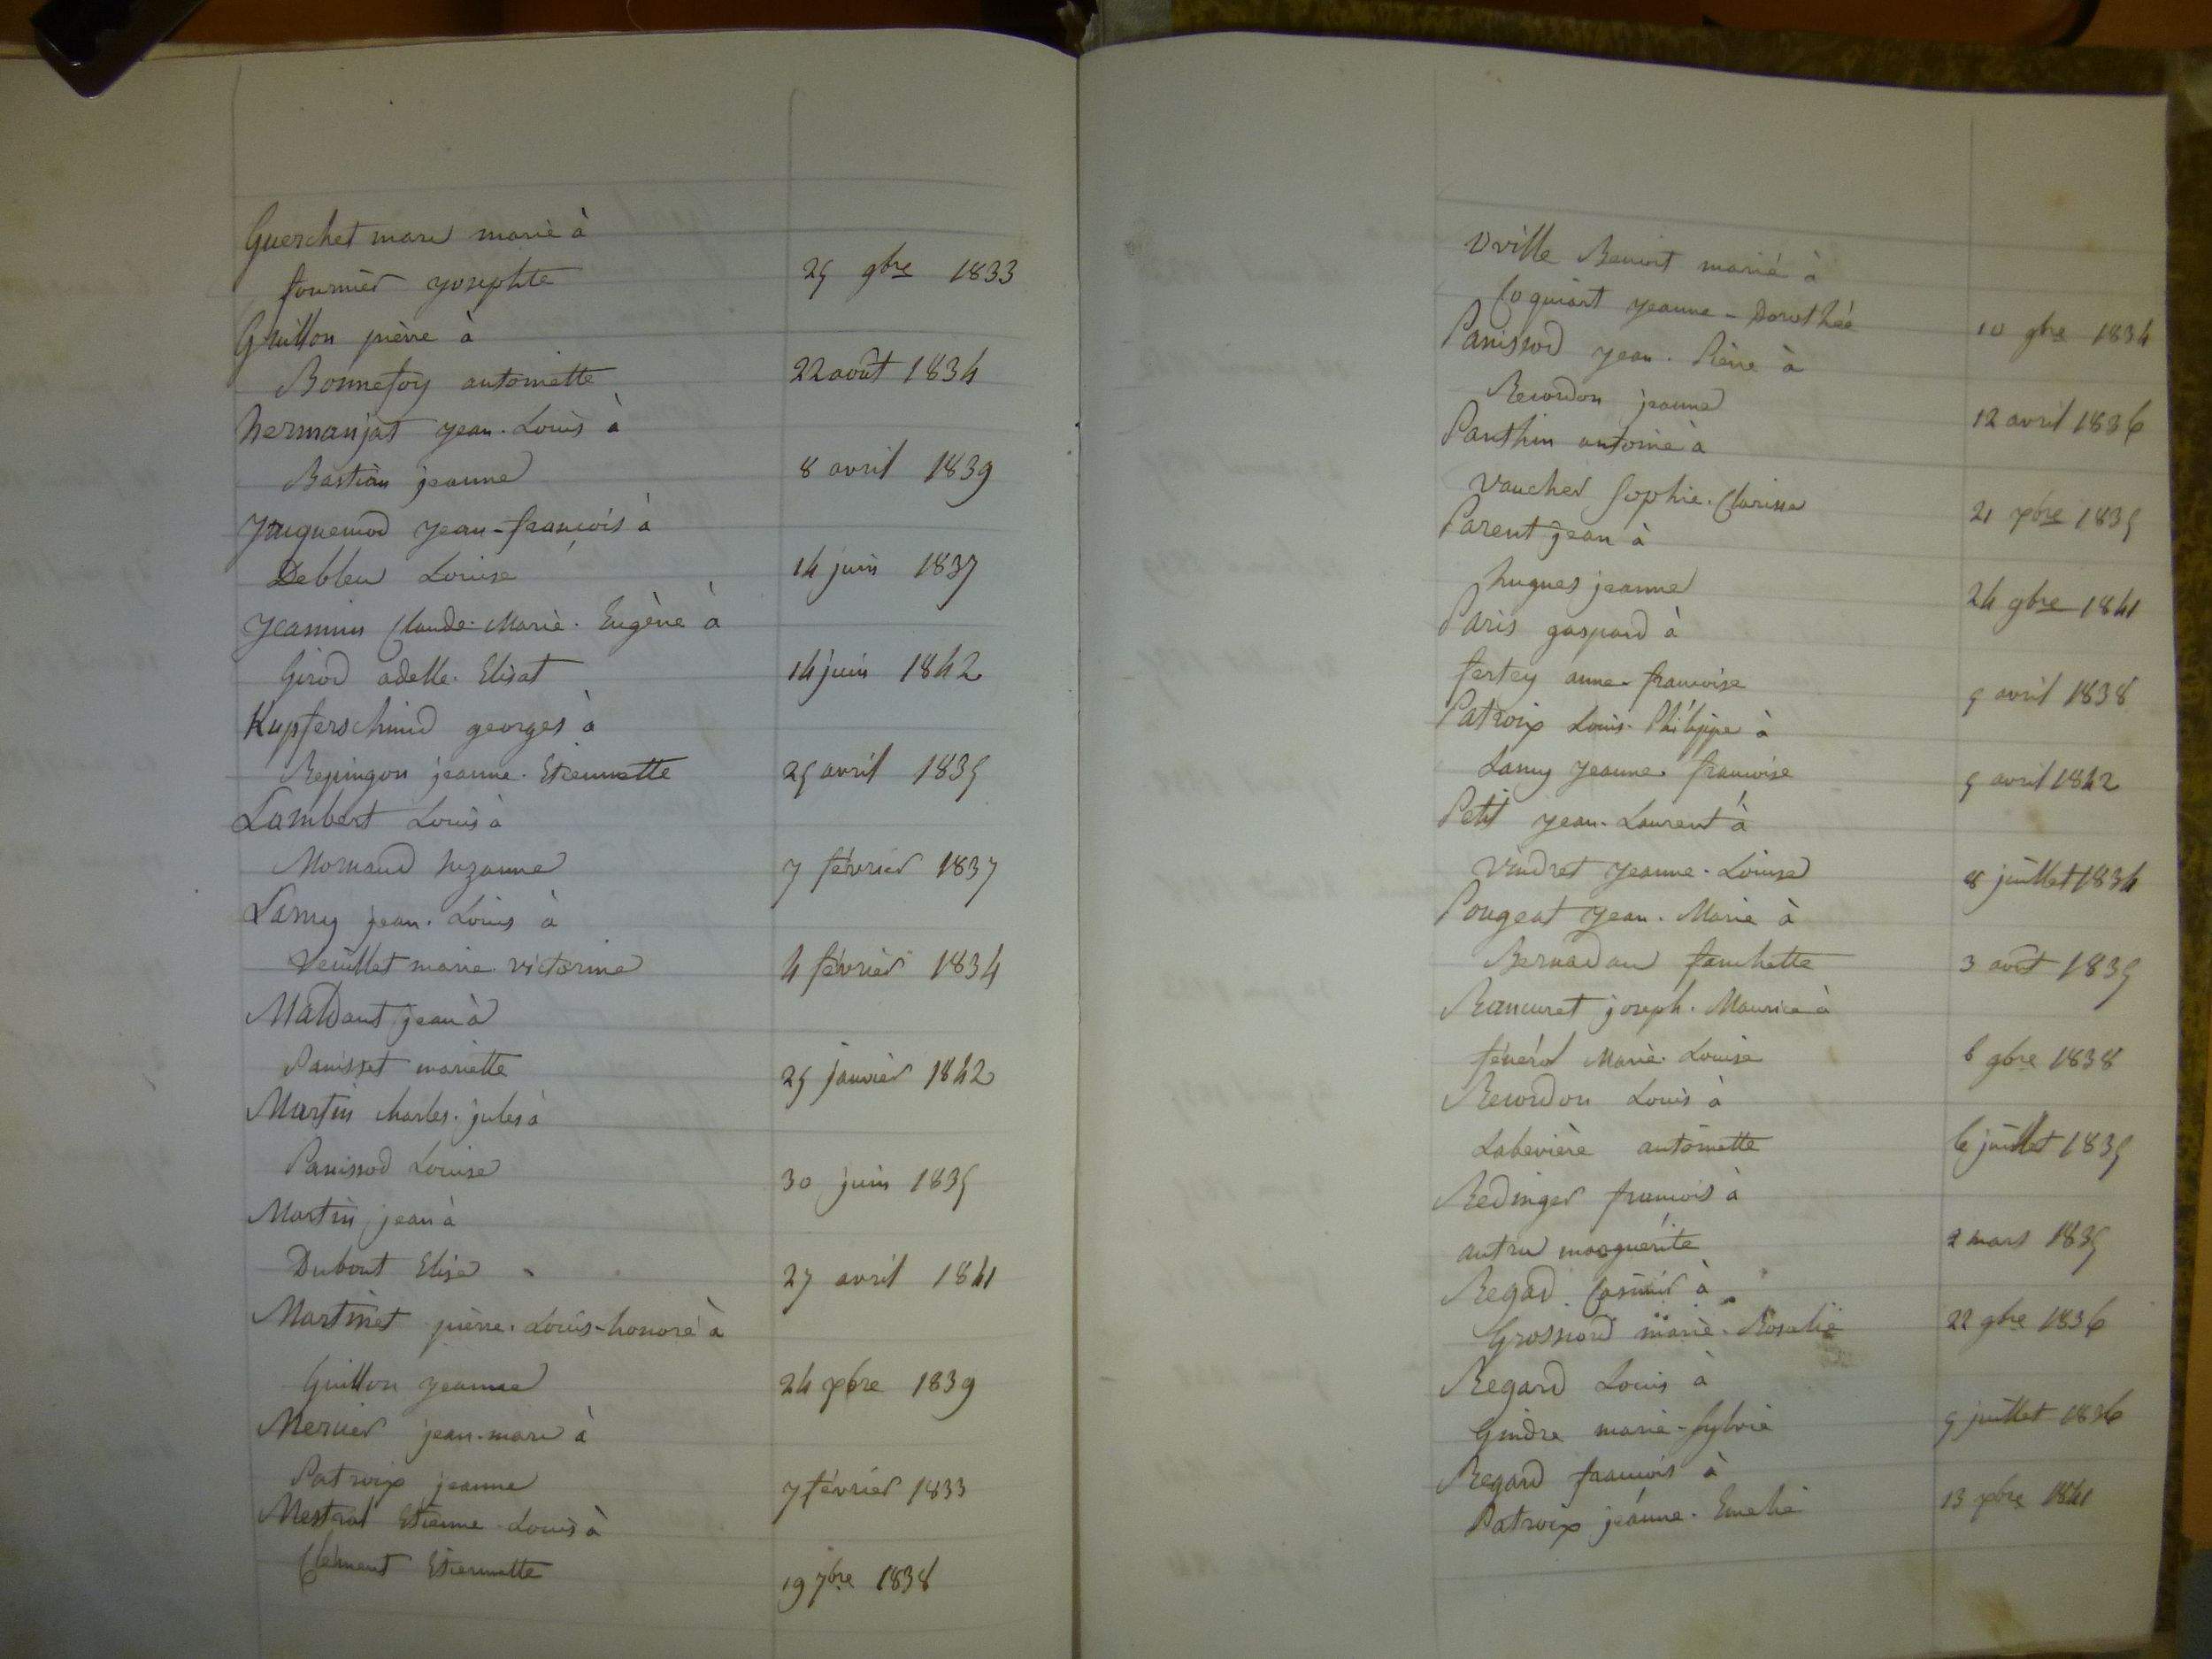 Guerchet marc marié à
fournier josephte 25 9bre 1833
Guillon pièrre à
Bonnefoy antoinette 22 août 1834
hermanjat jean-Louis à
Bastian jeanne 8 avril 1839
Juquemod jean-francois à
Debleu Louise 14 juin 1837
Jeannin Claude-Marie-Eugène à
Girod adelle-Elisat 14 juin 1842
Kupferschmid georges à
Repingon jeanne-Etiennette 25 avril 1835
Lambert Louis à
Mornand suzanne 7 février 1837
Lamy jean-Louis à
Veuillet marie-victorine 4 février 1834
Maldant jean à
Panisset mariette 25 janvier 1842
Martin charles-jules à
Panissod Louise 30 juin 1835
Martin jean à
Dubout Elise 27 avril 1841
Martinet pièrre-Louis-honoré à
Guillon jeanne 24 xbre 1839
Mercier jean-marc à
Patroix jeanne 7 février 1833
Mestral Etienne-Louis à
Clément Etiennette 19 7bre 1838
Oville Benoit marié à
Coquiart jeanne-Dorothéa 10 9bre 1834
Panissod jean-Pièrre à
Recordon jeanne 12 avril 1836
Panthin antoine à
Vaucher Sophie-Clarisse 21 xbre 1835
Parent jean à
hugues jeanne 24 9bre 1841
Paris gaspard à
fertey anne-francoise 5 avril 1838
Patroix Louis-Philippe à
Lamy jeanne-francoise 5 avril 1842
Petit jean-Laurent à
Vindret jeanne-Louise 8 juillet 1834
Pougeat jean-Marie à
Bernadau fanchette 3 août 1835
Rancuret joseph-Maurice à
fénérol Marie-Louise 6 9bre 1838
Recordon Louis à
Labevière antoinette 6 juillet 1835
Redinger francois à
autru marguérite 2 mars 1835
Regard Casimir à
Grossiord marie-Rosalie 22 9bre 1836
Regard Louis à
Gindre marie-Sylvie 5 juillet 1836
Regard francois à
Patroix jeánne-Emelie 13 xbre 1841